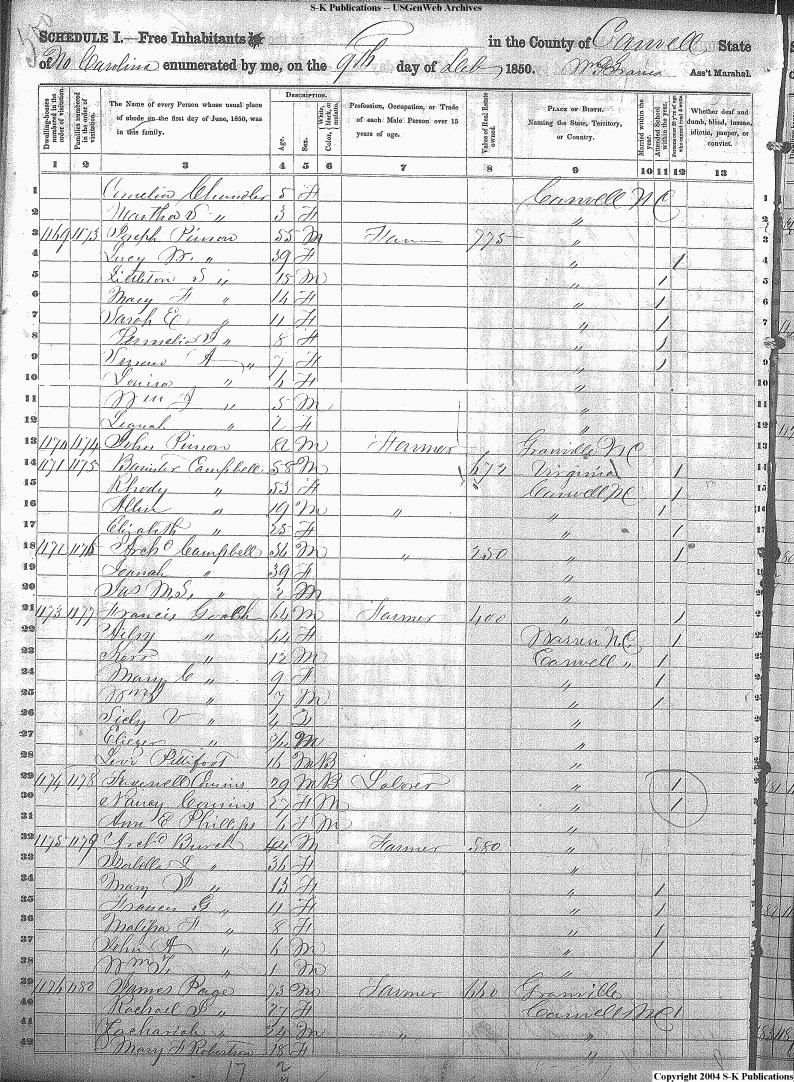 S-K Publications -- USGenWeb Archives
SCHEDULE I.—Free Inhabitants in the County of Caswell State
of No Carolina enumerated by me, on the 9th day of 1850. Ass't Marshal.
Dwelling-houses numbered in the order of visitation.
Families numbered in the order of visitation.
The Name of every Person whose usual place of abode on the first day of June, 1850, was in this family.
DESCRIPTION.
Age.
Sex.
White, black, or mulatto.
Color,
Profession, Occupation, or Trade of each Male Person over 15 years of age.
Value of Real Estate owned.
PLACE OF BIRTH.
Naming the State, Territory, or Country.
Married within the year.
Attended School within the year.
Persons over 20 y'rs of age who cannot read & write.
Whether deaf and dumb, blind, insane, idiotic, pauper, or convict.
1 2 3 4 5 6 7 8 9 10 11 12 13
1 Amelia Chandler 5 F Caswell NC 1
2 Martha 〃 3 F 〃 2
3 1169 1173 Joseph Pinson 55 M Farm 775 〃 3
4 Lucy W. 〃 39 F 〃 / 4
5 Littleton 〃 15 M 〃 / 5
6 Mary F 〃 14 F 〃 / 6
7 Sarah E 〃 11 F 〃 / 7
8 Permelia 〃 8 F 〃 / 8
9 A 〃 7 F 〃 / 9
10 Louisa 〃 6 F 〃 10
11 Wm J 〃 5 M 〃 11
12 〃 2 F 〃 12
13 1170 1174 John Pinson M Farmer Granville NC 13
14 1171 1175 Banister Campbell 58 M 672 Virginia / 14
15 Rhody 〃 53 F Caswell NC / 15
16 Allen 〃 19 M 〃 〃 / 16
17 Elizabeth 〃 25 F 〃 / 17
18 1172 1176 Archd Campbell 34 M 〃 250 〃 / 18
19 〃 39 F 〃 19
20 Jas M.S. 〃 2 M 〃 20
21 1173 1177 Francis Gooch 64 M Farmer 400 〃 / 21
22 〃 44 F Warren N.C / 22
23 〃 12 M Caswell 〃 / 23
24 Mary C 〃 9 F 〃 / 24
25 Wm 〃 7 M 〃 / 25
26 Sicly V 〃 4 F 〃
27 Eliezer 〃 M 〃
28 Levi Pittifoot 16 M B 〃
29 1174 1178 29 M B Laborer 〃 /
30 Nancy Cousins 27 F M 〃 /
31 Ann E Phillips 6 F M 〃
32 1175 1179 Archd Burch 44 M Farmer 580 〃
33 〃 36 F 〃
34 Mary 〃 13 F 〃 /
35 Frances G 〃 11 F 〃 /
36 Malissa F 〃 8 F 〃 /
37 John A 〃 6 M 〃 /
38 Wm T. 〃 1 M 〃
39 1176 1180 James Page 73 M Farmer 660 Granville
40 Rachael 〃 27 F Caswell NC /
41 Zachariah 〃 24 M 〃 〃
42 Mary F Robertson 18 F 〃
17 2
Copyright 2004 S-K Publications